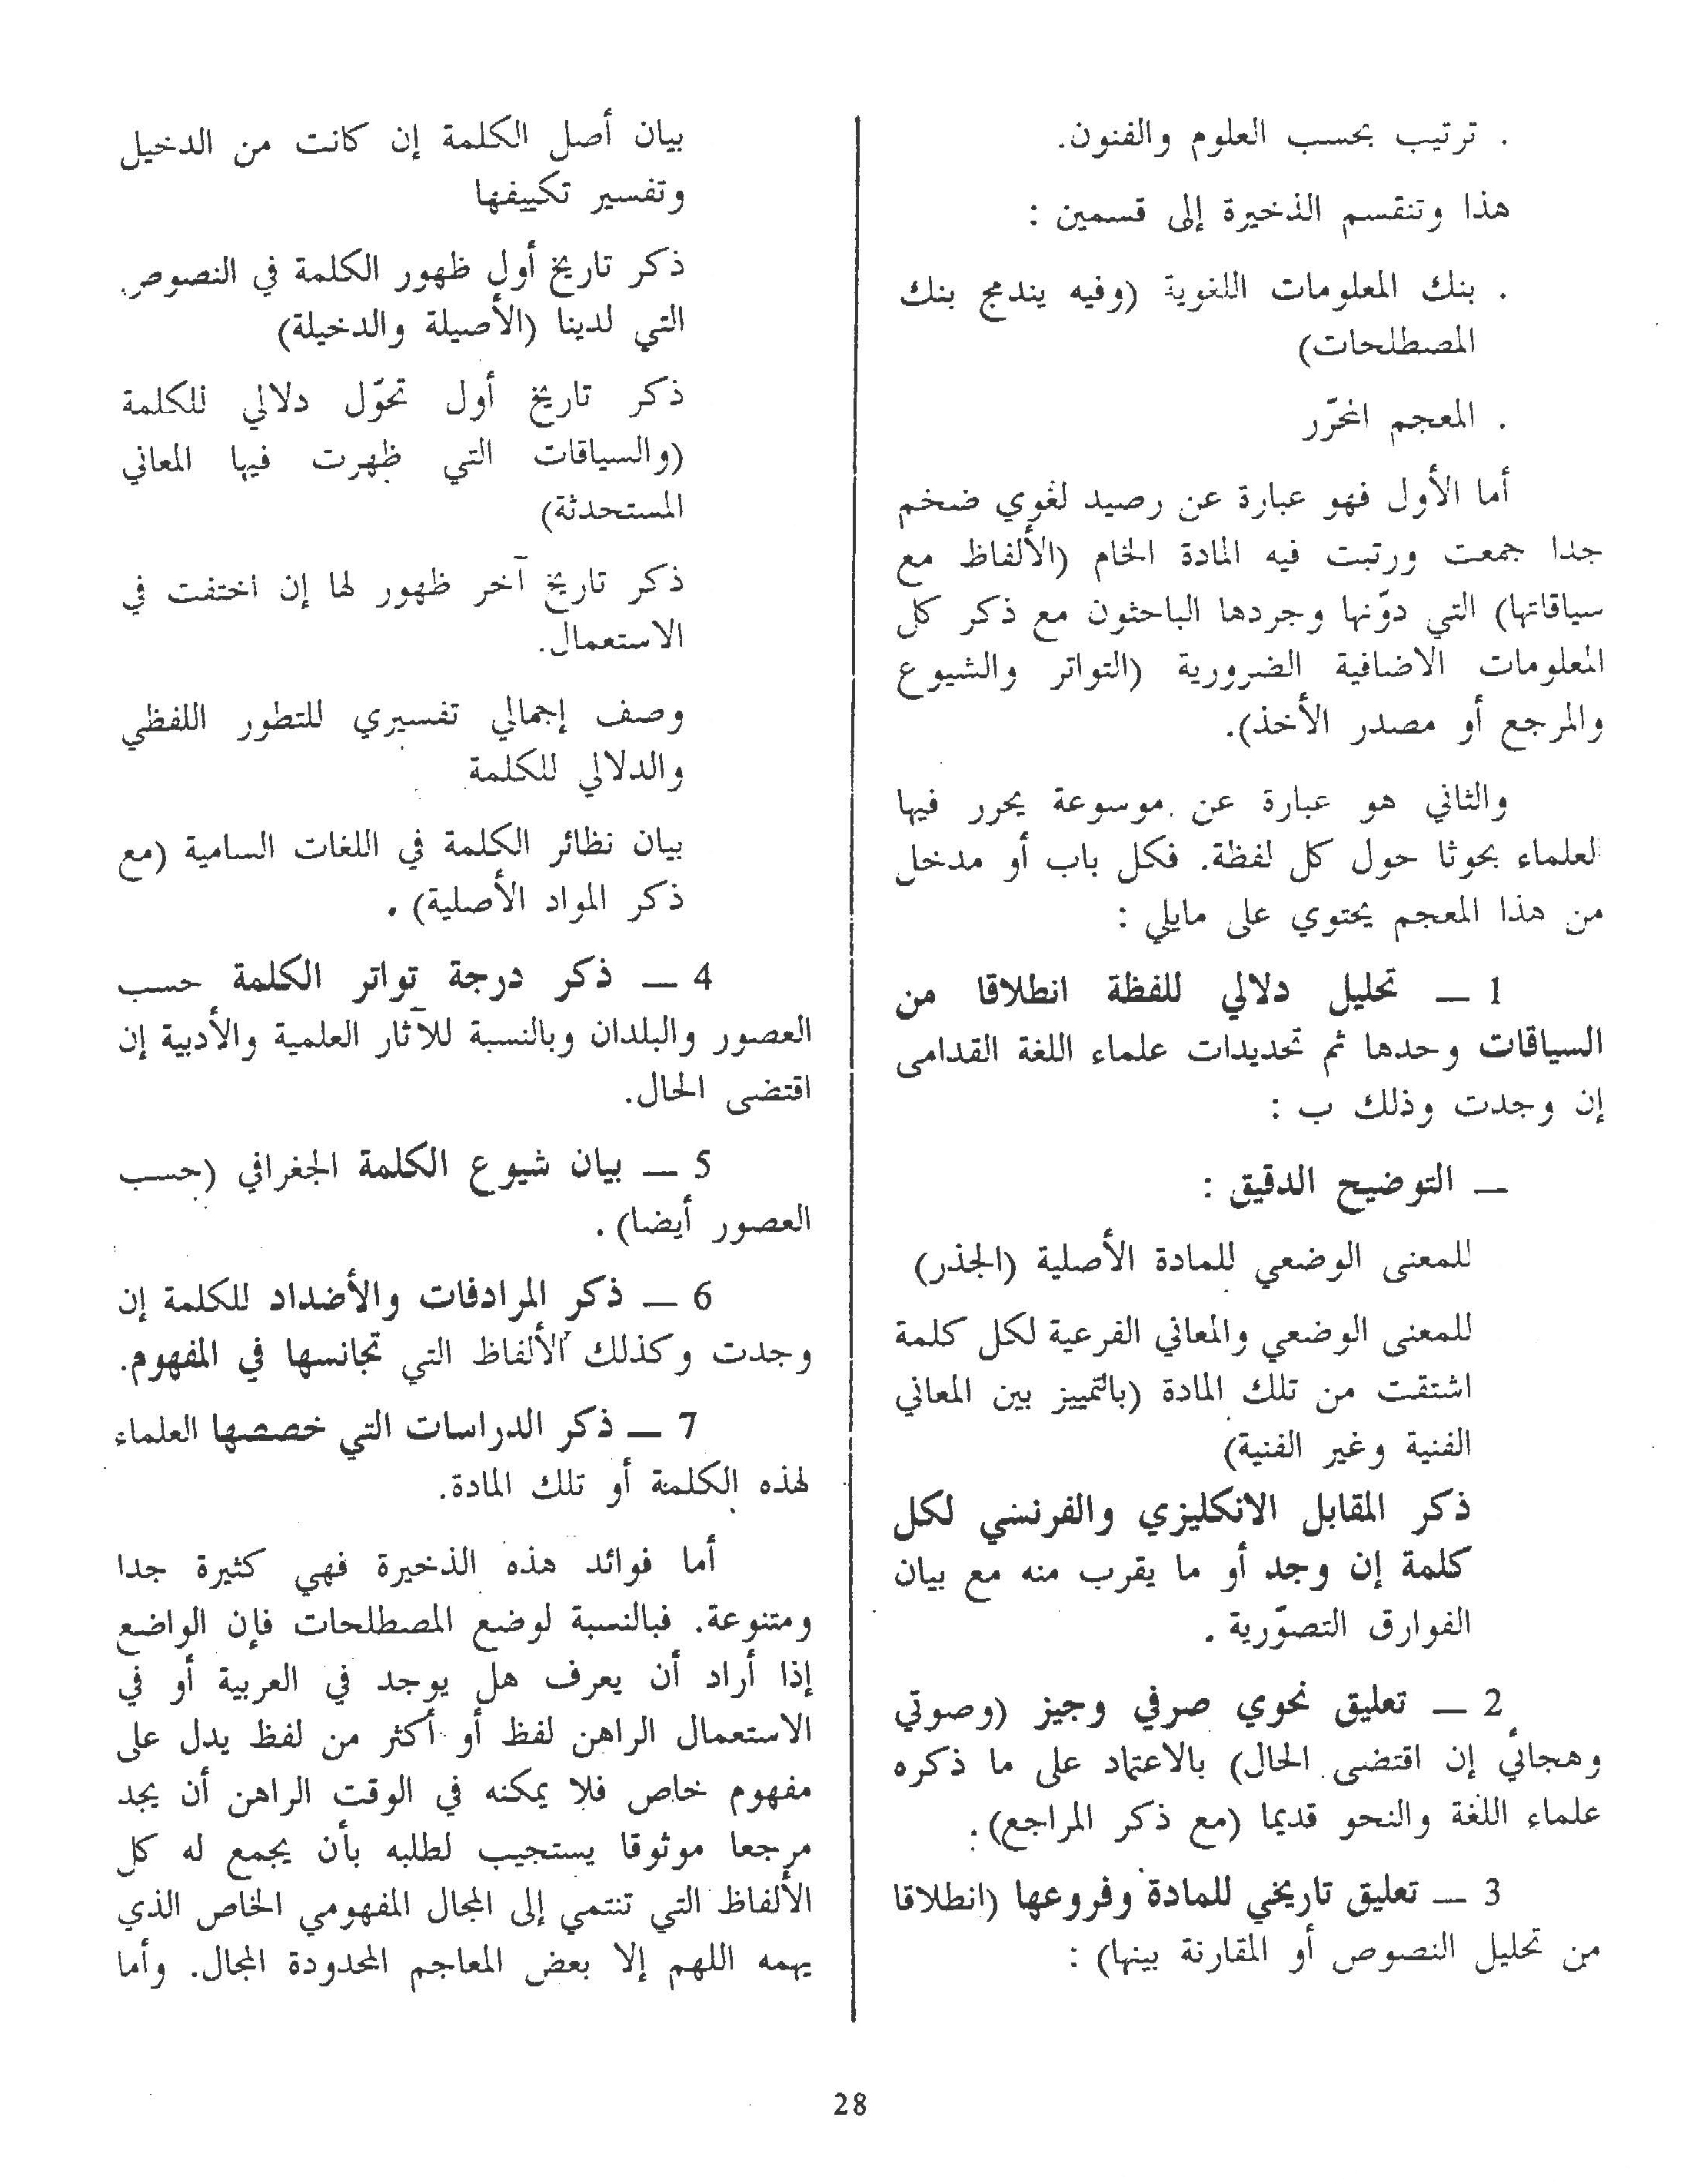 . ترتيب بحسب العلوم والفنون.
هذا وتنقسم الذخيرة إلى قسمين :
. بنك المعلومات اللغوية (وفيه يندمج بنك
المصطلحات)
. المعجم المحرّر
أما الأول فهو عبارة عن رصيد لغوي ضخم
جدا جمعت ورتبت فيه المادة الخام (الألفاظ مع
سياقاتها) التي دوّنها وجردها الباحثون مع ذكر كل
المعلومات الاضافية الضرورية (التواتر والشيوع
والمرجع أو مصدر الأخذ).
والثاني هو عبارة عن موسوعة يحرر فيها
العلماء بحوثا حول كل لفظة. فكل باب أو مدخل
من هذا المعجم يحتوي على مايلي :
1 — تحليل دلالي للفظة انطلاقا من
السياقات وحدها ثم تحديدات علماء اللغة القدامى
إن وجدت وذلك ب :
— التوضيح الدقيق :
للمعنى الوضعي للمادة الأصلية (الجذر)
للمعنى الوضعي والمعاني الفرعية لكل كلمة
اشتقت من تلك المادة (بالتمييز بين المعاني
الفنية وغير الفنية)
ذكر المقابل الانكليزي والفرنسي لكل
كلمة إن وجد أو ما يقرب منه مع بيان
الفوارق التصوّرية .
2 — تعليق نحوي صرفي وجيز (وصوتي
وهجائي إن اقتضى الحال) بالاعتماد على ما ذكره
علماء اللغة والنحو قديما (مع ذكر المراجع).
3 — تعليق تاريخي للمادة وفروعها (انطلاقا
من تحليل النصوص أو المقارنة بينها) :
بيان أصل الكلمة إن كانت من الدخيل
وتفسير تكييفها
ذكر تاريخ أول ظهور الكلمة في النصوص
التي لدينا (الأصيلة والدخيلة)
ذكر تاريخ أول تحوّل دلالي للكلمة
(والسياقات التي ظهرت فيها المعاني
المستحدثة)
ذكر تاريخ آخر ظهور لها إن اختفت في
الاستعمال.
وصف إجمالي تفسيري للتطور اللفظي
والدلالي للكلمة
بيان نظائر الكلمة في اللغات السامية (مع
ذكر المواد الأصلية) .
4 — ذكر درجة تواتر الكلمة حسب
العصور والبلدان وبالنسبة للآثار العلمية والأدبية إن
اقتضى الحال.
5 — بيان شيوع الكلمة الجغرافي (حسب
العصور أيضا) .
6 — ذكر المرادفات والأضداد للكلمة إن
وجدت وكذلك الألفاظ التي تجانسها في المفهوم.
7 — ذكر الدراسات التي خصصها العلماء
لهذه الكلمة أو تلك المادة.
أما فوائد هذه الذخيرة فهي كثيرة جدا
ومتنوعة. فبالنسبة لوضع المصطلحات فإن الواضع
إذا أراد أن يعرف هل يوجد في العربية أو في
الاستعمال الراهن لفظ أو أكثر من لفظ يدل على
مفهوم خاص فلا يمكنه في الوقت الراهن أن يجد
مرجعا موثوقا يستجيب لطلبه بأن يجمع له كل
الألفاظ التي تنتمي إلى المجال المفهومي الخاص الذي
يهمه اللهم إلا بعض المعاجم المحدودة المجال. وأما
28